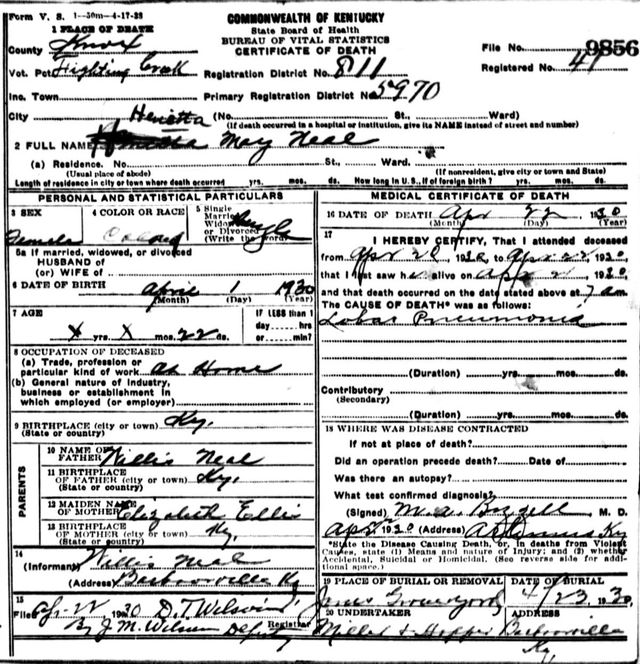 Form V. S. 1-50m-4-17-23
COMMONWEALTH OF KENTUCKY
State Board of Health
BUREAU OF VITAL STATISTICS
CERTIFICATE OF DEATH
1 PLACE OF DEATH
County Knox
File No. 9856
Vot. Pct Fighting Creek
Registration District No. 811
Registered No. 41
Inc. Town
Primary Registration District No. 5970
City (No. St., Ward)
(If death occurred in a hospital or institution, give its NAME instead of street and number)
Henrietta
2 FULL NAME May Neal
(a) Residence. No. St., Ward.
(Usual place of abode) (If nonresident, give city or town and State)
Length of residence in city or town where death occurred yrs. mos. ds. How long in U. S., if of foreign birth? yrs. mos. ds.
PERSONAL AND STATISTICAL PARTICULARS
3 SEX
Female
4 COLOR OR RACE
Colored
5 Single
Married
Widowed
or Divorced
(Write the word)
Single
5a If married, widowed, or divorced
HUSBAND of
(or) WIFE of
6 DATE OF BIRTH April 1 1930
(Month) (Day) (Year)
7 AGE
x yrs. x mos. 22 ds.
If LESS than 1
day hrs.
or min.?
8 OCCUPATION OF DECEASED
(a) Trade, profession or
particular kind of work at Home
(b) General nature of industry,
business or establishment in
which employed (or employer)
9 BIRTHPLACE (city or town) Ky.
(State or country)
PARENTS
10 NAME OF
FATHER Willis Neal
11 BIRTHPLACE
OF FATHER (city or town) Ky.
(State or country)
12 MAIDEN NAME
OF MOTHER Elizabeth Ellis
13 BIRTHPLACE
OF MOTHER (city or town) Ky.
(State or country)
14
(Informant) Willis Neal
(Address) Barbourville Ky
15
Filed Apr-22 1930 D. T. Wilson Registrar
By J M. Wilson Deputy
MEDICAL CERTIFICATE OF DEATH
16 DATE OF DEATH Apr 22 1930
(Month) (Day) (Year)
17
I HEREBY CERTIFY, That I attended deceased
from Apr 20 1930, to Apr 22 1930
that I last saw h alive on Apr 21 1930
and that death occurred on the date stated above at 7 am.
The CAUSE OF DEATH* was as follows:
Lobar Pneumonia
(Duration) yrs. mos. ds.
Contributory
(Secondary)
(Duration) yrs. mos. ds.
18 WHERE WAS DISEASE CONTRACTED
If not at place of death?
Did an operation precede death? Date of
Was there an autopsy?
What test confirmed diagnosis?
(Signed) M. a. M. D.
1930 (Address) Ky
*State the Disease Causing Death, or, in deaths from Violent
Causes, state (1) Means and nature of Injury; and (2) whether
Accidental, Suicidal or Homicidal. (See reverse side for addi-
tional space.)
19 PLACE OF BURIAL OR REMOVAL
Graveyard
DATE OF BURIAL
4/23 1930
20 UNDERTAKER
Miller & Hopper
ADDRESS
Barbourville
Ky.